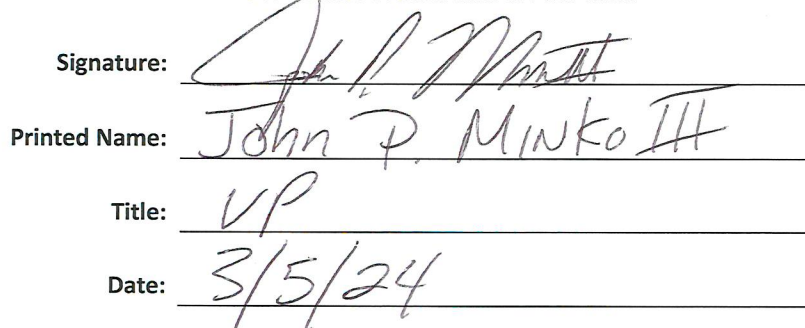 Signature: John P. Minko III
Printed Name: John P. Minko III
Title: VP
Date: 3/5/24